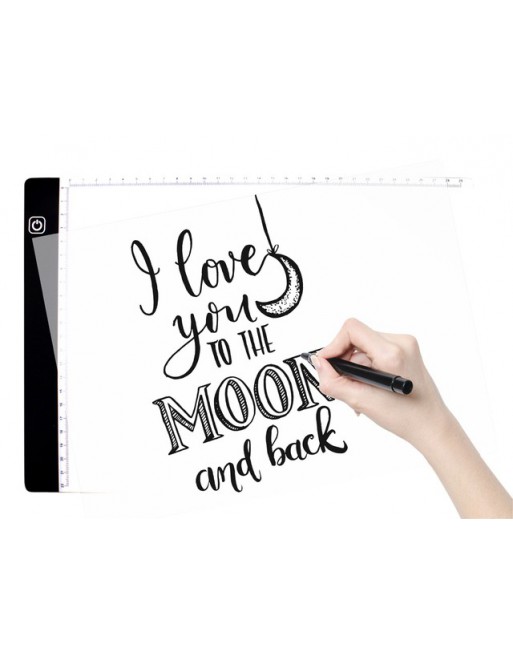 I love
you
TO THE
MOON
and back